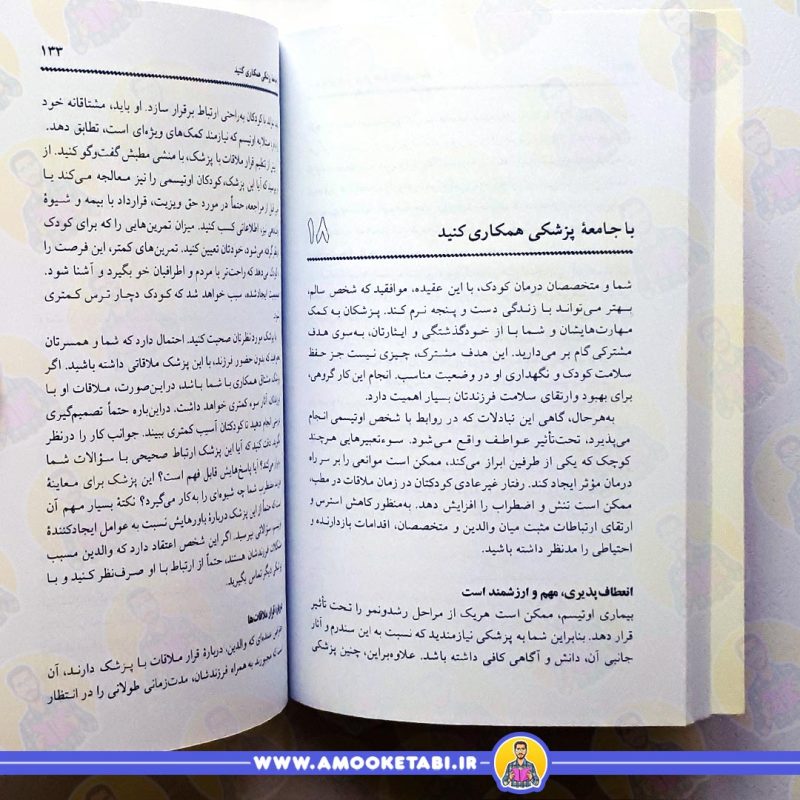 با جامعهٔ پزشکی همکاری کنید ۱۸
شما و متخصصان درمان کودک، با این عقیده، موافقید که شخص سالم،
بهتر می‌تواند با زندگی دست و پنجه نرم کند. پزشکان به کمک
مهارت‌هایشان و شما با از خودگذشتگی و ایثارتان، به‌سوی هدف
مشترکی گام بر می‌دارید. این هدف مشترک، چیزی نیست جز حفظ
سلامت کودک و نگهداری او در وضعیت مناسب. انجام این کار گروهی،
برای بهبود وارتقای سلامت فرزندتان بسیار اهمیت دارد.
به‌هرحال، گاهی این تبادلات که در روابط با شخص اوتیسمی انجام
می‌پذیرد، تحت‌تأثیر عواطف واقع می‌شود. سوءتعبیرهایی هرچند
کوچک که یکی از طرفین ابراز می‌کند، ممکن است موانعی را بر سر راه
درمان مؤثر ایجاد کند. رفتار غیرعادی کودکتان در زمان ملاقات در مطب،
ممکن است تنش و اضطراب را افزایش دهد. به‌منظور کاهش استرس و
ارتقای ارتباطات مثبت میان والدین و متخصصان، اقدامات بازدارنده و
احتیاطی را مدنظر داشته باشید.
انعطاف‌پذیری، مهم و ارزشمند است
بیماری اوتیسم، ممکن است هریک از مراحل رشدونمو را تحت تأثیر
قرار دهد. بنابراین شما به پزشکی نیازمندید که نسبت به این سندرم و آثار
جانبی آن، دانش و آگاهی کافی داشته باشد. علاوه‌براین، چنین پزشکی
۱۳۳
همکاری کنید
با کودکان به‌راحتی ارتباط برقرار سازد. او باید، مشتاقانه خود
اوتیسم که نیازمند کمک‌های ویژه‌ای است، تطابق دهد.
از تنظیم قرار ملاقات با پزشک، با منشی مطبش گفت‌وگو کنید. از
آیا این پزشک، کودکان اوتیسمی را نیز معالجه می‌کند یا
از مراجعه، حتماً در مورد حق ویزیت، قرارداد با بیمه و شیوهٔ
اطلاعاتی کسب کنید. میزان تمرین‌هایی را که برای کودک
گرفته می‌شود، خودتان تعیین کنید. تمرین‌های کمتر، این فرصت را
می‌دهد که راحت‌تر با مردم و اطرافیان خو بگیرد و آشنا شود.
ایجادشده، سبب خواهد شد که کودک دچار ترس کمتری
با پزشک مورد نظرتان صحبت کنید. احتمال دارد که شما و همسرتان
بدون حضور فرزند، با این پزشک ملاقاتی داشته باشید. اگر
همکاری با شما باشد، دراین‌صورت، ملاقات او با
آثار سوء کمتری خواهد داشت. دراین‌باره حتماً تصمیم‌گیری
انجام دهید تا کودکتان آسیب کمتری ببیند. جوانب کار را درنظر
دقت کنید که آیا این پزشک ارتباط صحیحی با سؤالات شما
آیا پاسخ‌هایش قابل فهم است؟ این پزشک برای معاینهٔ
شما چه شیوه‌ای را به‌کار می‌گیرد؟ نکتهٔ بسیار مهم آن
حتماً از این پزشک دربارهٔ باورهایش نسبت به عوامل ایجادکنندهٔ
سؤالاتی بپرسید. اگر این شخص اعتقاد دارد که والدین مسبب
فرزندشان هستند، حتماً از ارتباط با او صرف‌نظر کنید و با
دیگر تماس بگیرید.
قرار ملاقات‌ها
که والدین، دربارهٔ قرار ملاقات با پزشک دارند، آن
مجبورند به همراه فرزندشان، مدت‌زمانی طولانی را در انتظار
WWW.AMOOKETABI.IR